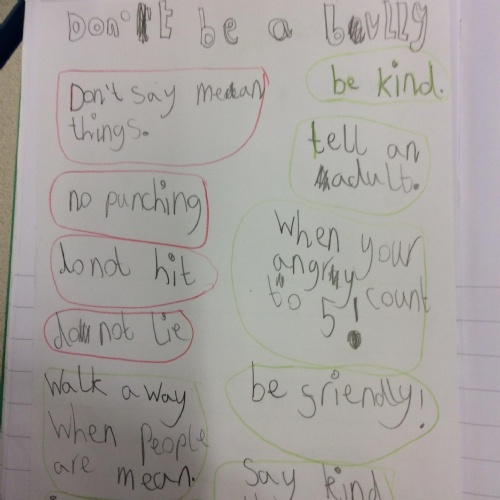 Don't be a bully
Don't say mean
things.
no punching
do not hit
do not lie
Walk away
When people
are mean.
be kind.
tell an
adult.
When your
angry count
to 5!
be friendly!
Say kind